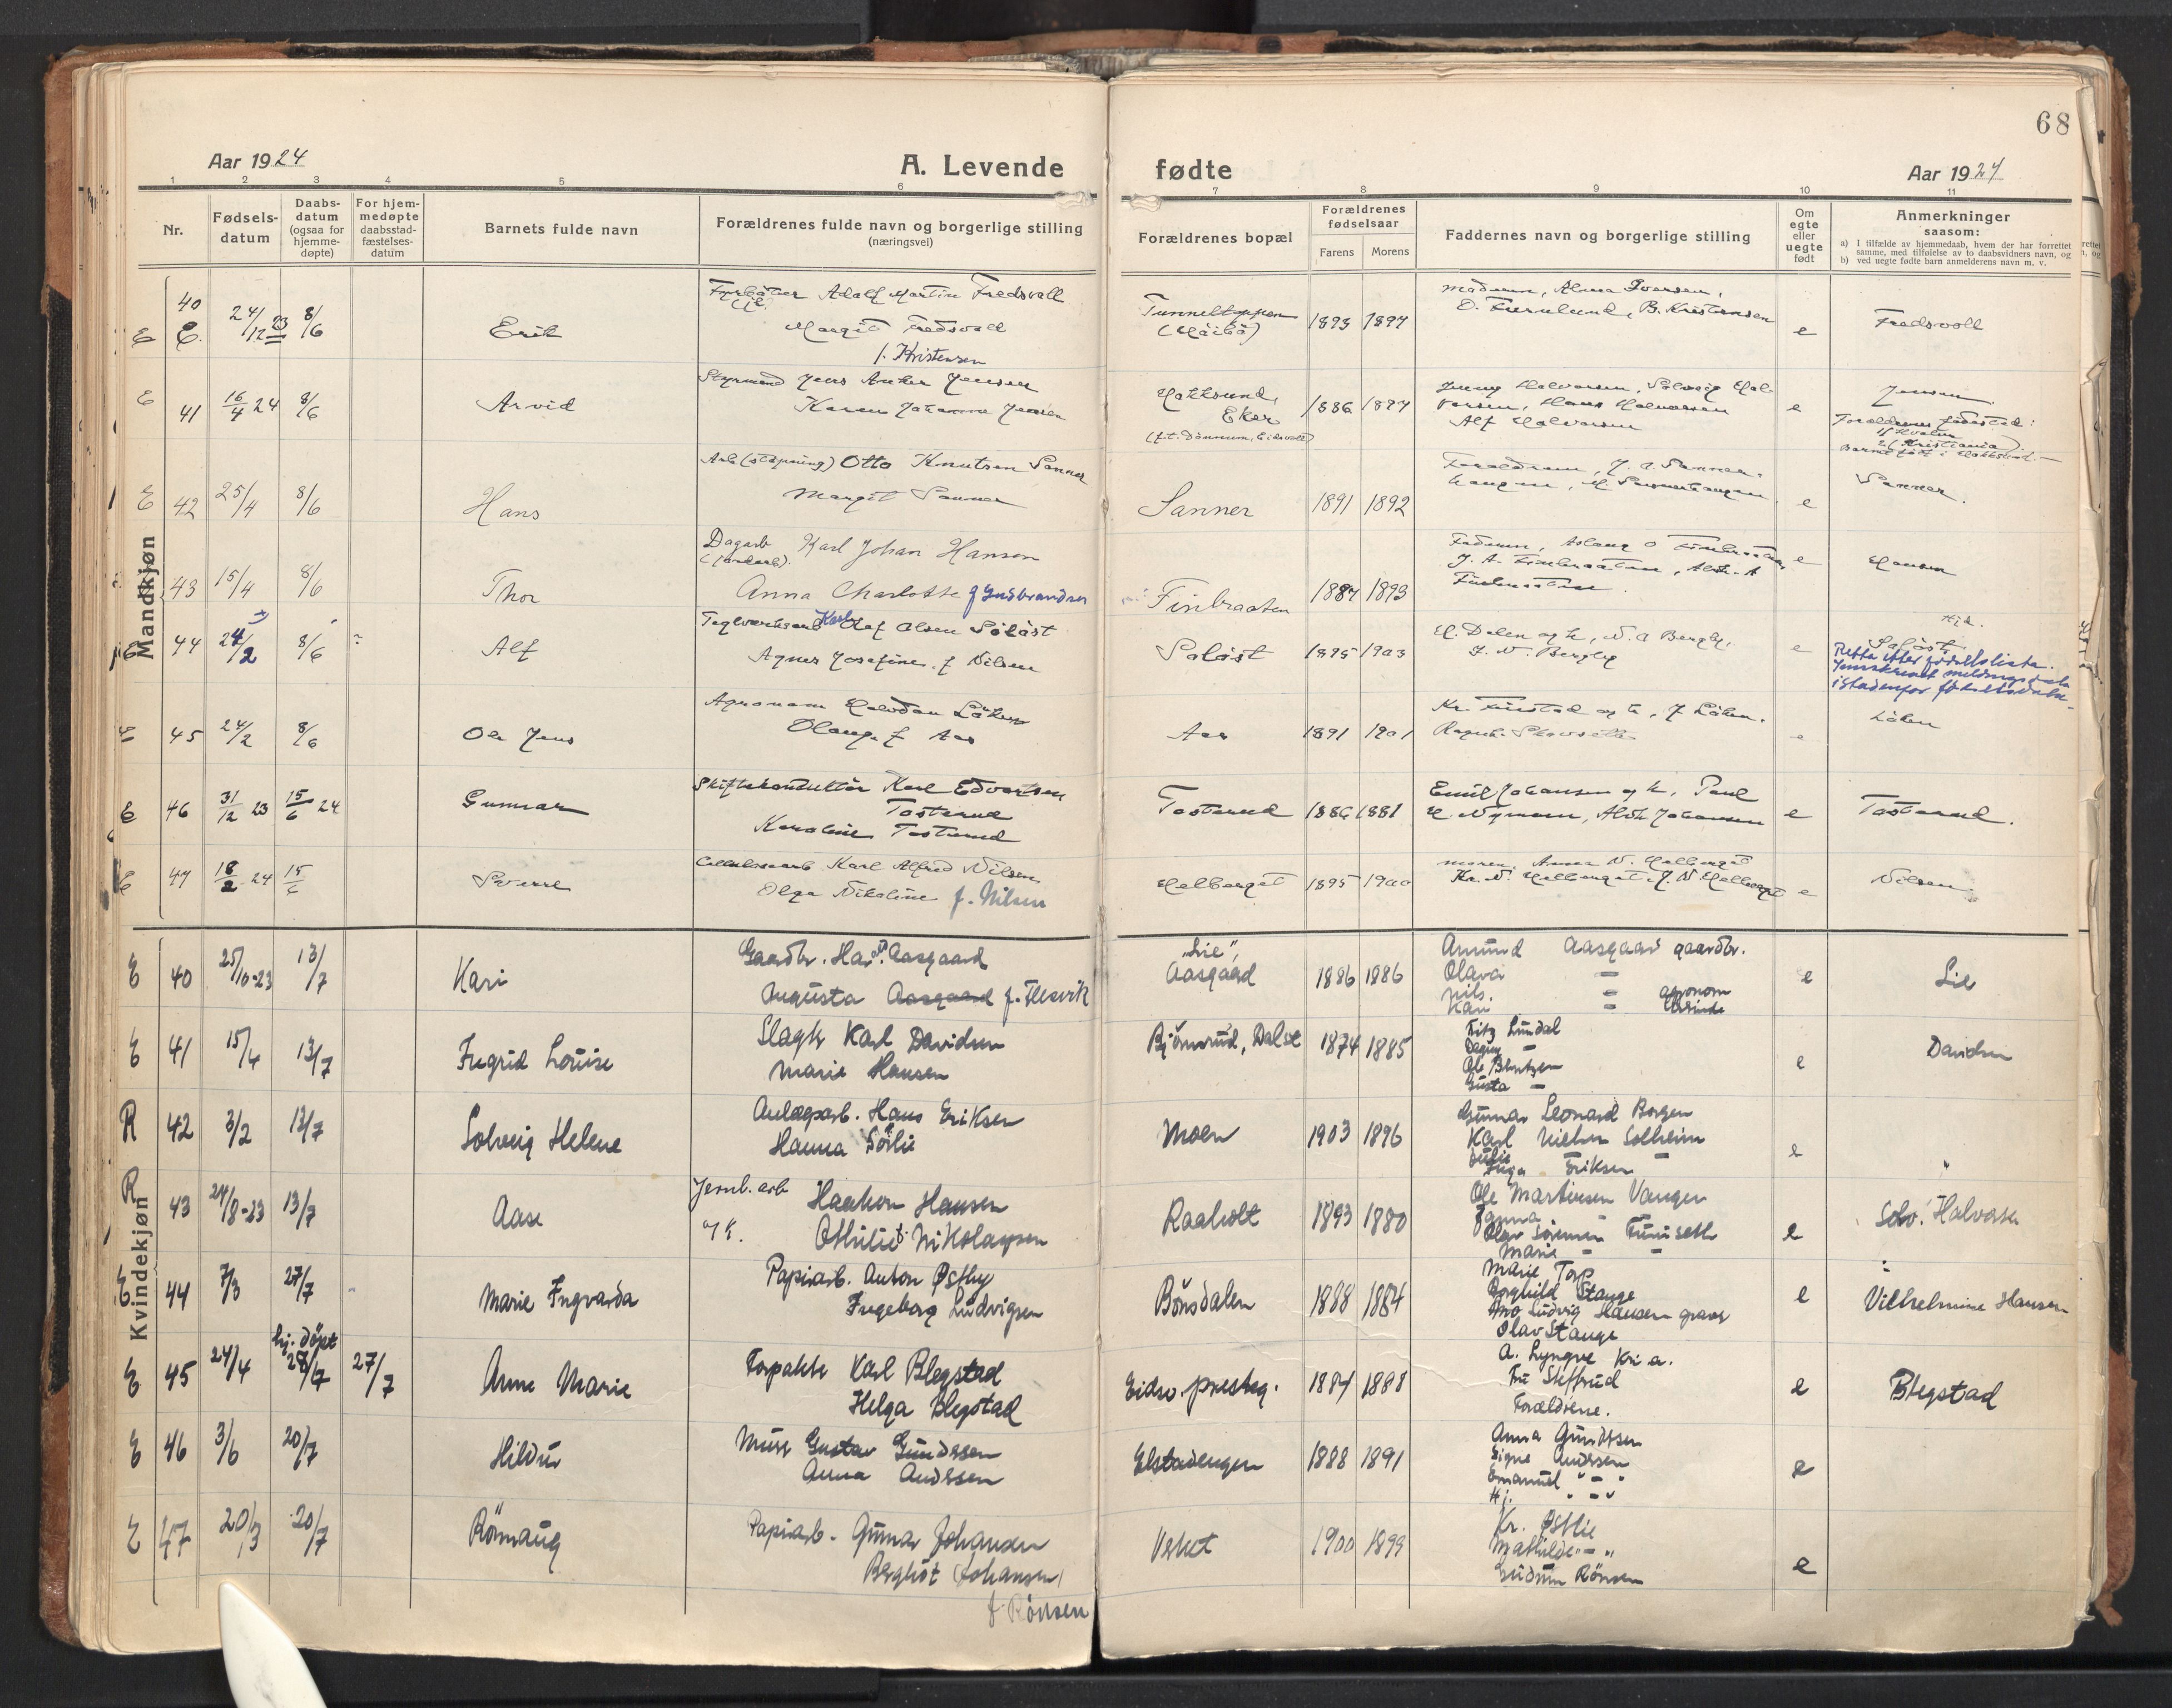 68
Aar 1924
A. Levende
fødte
Aar 1924
1 2 3 4 5 6 7 8 9 10 11
Nr.
Fødsels-
datum
Daabs-
datum
(ogsaa for
hjemme-
døpte)
For hjem-
medøpte
daabsstad-
fæstelses-
datum
Barnets fulde navn
Forældrenes fulde navn og borgerlige stilling
(næringsvei)
Forældrenes bopæl
Forældrenes
fødselsaar
Farens Morens
Faddernes navn og borgerlige stilling
Om
egte
eller
uegte
født
Anmerkninger
saasom:
a) I tilfælde av hjemmedaab, hvem der har forrettet
samme, med tilføielse av to daabsvidners navn, og
b) ved uegte fødte barn anmelderens navn m. v.
Mandkjøn
E 40 24/12 23 8/6 Erik
Fyrbøter Adolf Martin Fredsvoll
Margit Fredsvoll
f. Kristensen
Tunneltoppen
1893 1897
Moderen, Alma Iversen,
B. Kristensen
e Fredsvoll
E 41 16/4 24 8/6 Arvid
Styrmand Jens Anker Jensen
Karen Johanne Jensen
Hokksund,
Eker
(p.t. Dønnum, Eidsvoll)
1886 1897
Jenny Halvorsen, Solveig Hal-
vorsen, Hans Halvorsen
Alf Halvorsen
e Jensen
Forældrenes fødested:
Kristiania
Barnet født i Hokksund.
E 42 25/4 8/6 Hans
Otto Knutsen Sanner
Margit Sanner
Sanner 1891 1892
Forældrene, J. A. Sanner-
haugen, M Sannerhaugen
e Sanner.
43 15/4 8/6 Thor
Dagarb Karl Johan Hansen
(jordarb).
Anna Charlotte f Gulbrandsen
Finbraaten 1887 1893
Faderen, Aslaug O Finbraaten,
J. A. Finbraaten, Alvh. A
Finbraaten.
e Hansen
E 44 24/2 8/6 Alf
Teglverksarb Karl Olaf Olsen Solåst
Agnes Josefine f Nilsen
Solåst 1895 1903
H. Dalen og h, N. A Bergby,
J. N. Bergby
e Solåst
Retta etter fødselslista.
Innskrevet meldingsdato
istadenfor fødselsdato.
E 45 24/2 8/6 Ole Jens
Agronom Halvdan Løken
Olauga f Aas
Aas 1891 1901
Kr. Finstad og h, J Løken.
Ragnh. Skovseth
e Løken
E 46 31/12 23 15/6 24 Gunnar
Skiftekonduktør Karl Edvartsen
Tosterud
Karoline Tosterud
Tosterud 1886 1881
Emil Johansen og h, Paul
H. Nymoen, Alvh Johansen
e Tosterud.
E 47 18/2 24 15/6 Sverre
Cellulosearb Karl Alfred Nilsen
Olga Nikoline f. Nilsen
Helberget 1895 1900
Moren, Anna N. Helberget
Kr. N. Helberget, J. N Helberget
e Nilsen.
Kvindekjøn
E 40 25/10-23 13/7 Kari
Gaardbr. Har. Aasgaard
Augusta Aasgaard f. Flesvik
"Lie",
Aasgaard 1886 1886
Amund Aasgaard gaardbr.
Olava –
Nils. – agronom
Kari –
e Lie
E 41 15/4 13/7 Ingrid Louise
Slagt. Karl Davidsen
Marie Hansen
Bjørnsrud, Dalse 1874 1885
Fritz Lundal
Dagny –
Ole Berntzen
Gusta –
e Davidsen
R 42 3/2 13/7 Solveig Helene
Anlægsarb. Hans Eriksen
Hanna Sørlie
Moen 1903 1896
Gunnar Leonard Borgen
Karl Solheim
Julie –
Inga Eriksen
e "
R 43 24/8-23 13/7 Aase
Jernb. arb Haakon Hansen
og h. Othilie f. Nikolaysen
Raaholt 1893 1880
Ole Martinsen Vangen
Olav Sørensen Funiseth
Marie – –
e Solv. Halvorsen
E 44 7/3 27/7 Marie Ingvarda
Papirarb. Anton Østby
Ingeborg Ludvigsen
Bønsdalen 1888 1884
Marie Torp
Borghild Stange
Ludvig Hansen
Olav Stange
e Vilhelmine Hansen
hj. døpt
E 45 24/4 27/7 Anne Marie
Forpakt. Karl Blegstad
Helga Blegstad
Eidsv. presteg. 1884 1888
A. Lyngve Kr.a.
Fru Steffrud
Forældrene.
e Blegstad
E 46 3/6 20/7 Hildur
Murer Gustav Gundersen
Anna Andersen
Elstadengen 1888 1891
Anna Gundersen
Signe Andersen
Emanuel " – "
Hj. " – "
e
E 47 20/3 20/7 Rømaug
Papirarb. Gunnar Johansen
Bergliot (Johansen)
f. Rønsen
Verket 1900 1899
Kr. Østlie
Mathilde " – "
Gudrun Rønsen
e